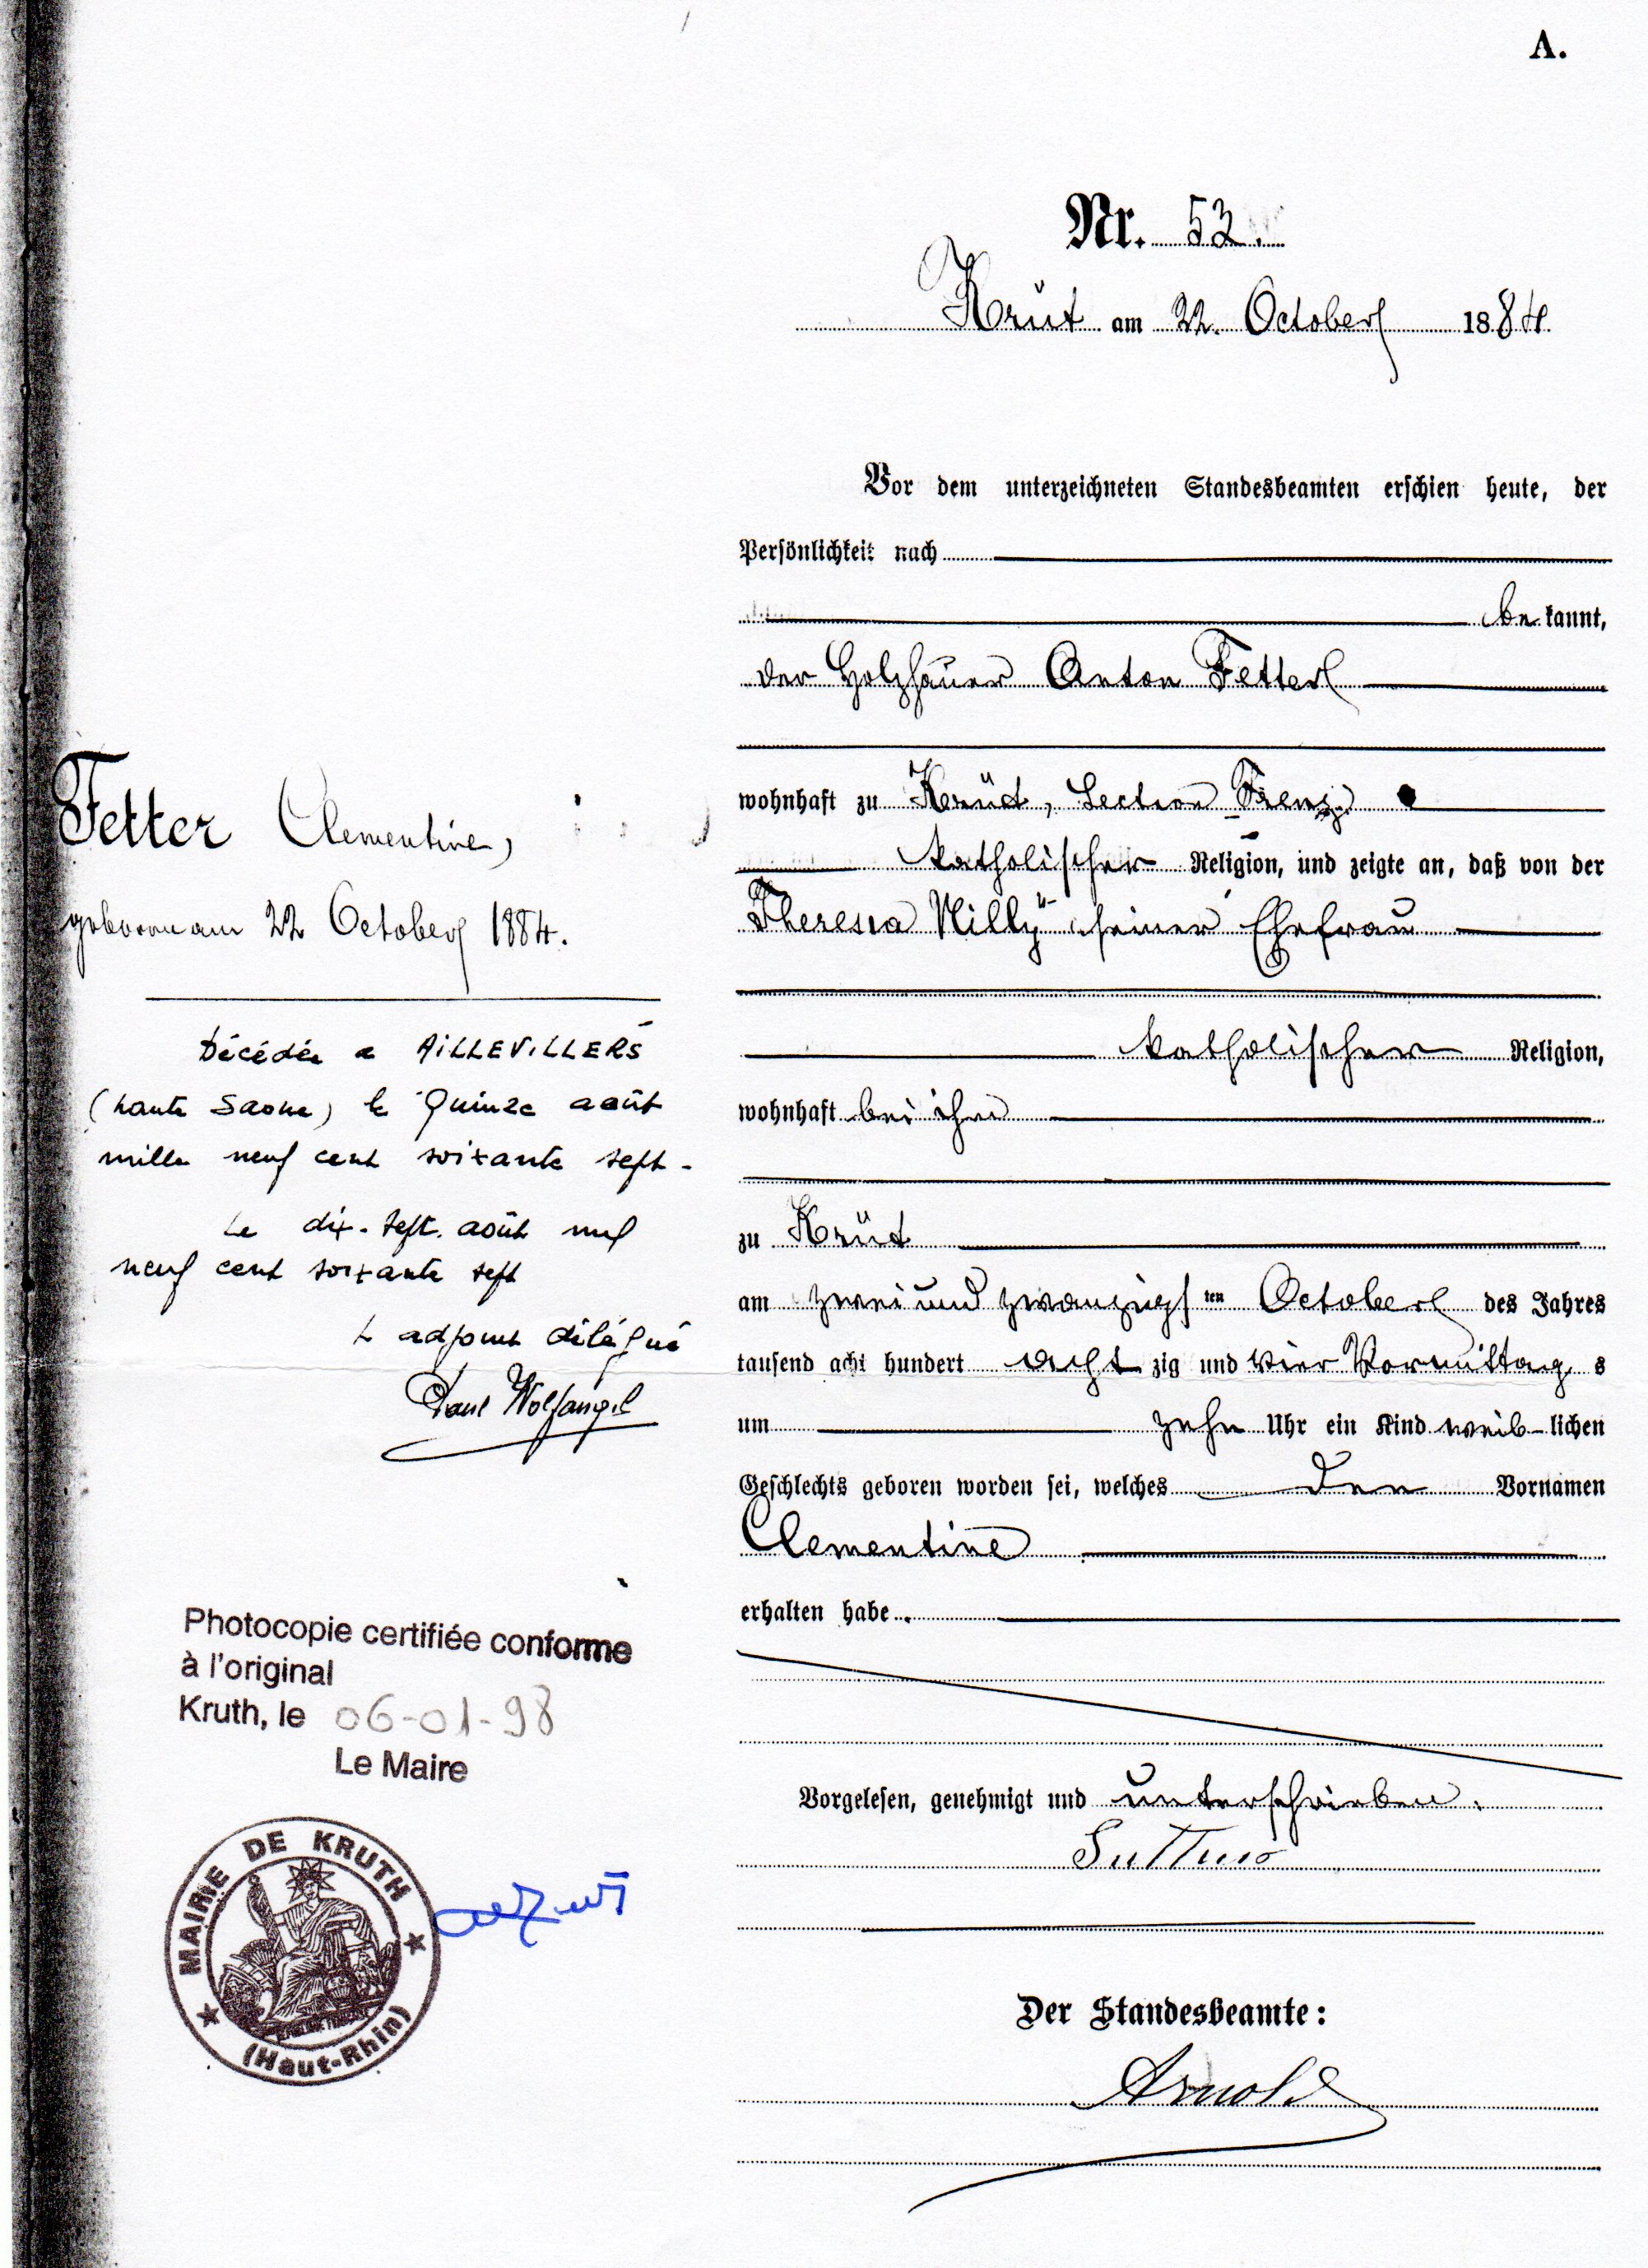 A.
Nr. 53.
Krüt am 22. October 1884.
Vor dem unterzeichneten Standesbeamten erschien heute, der
Persönlichkeit nach
be kannt,
der Holzhauer Anton Fetter
wohnhaft zu Krüt, Section Frenz
katholischer Religion, und zeigte an, daß von der
Theresia Nilly seiner Ehefrau
katholischer Religion,
wohnhaft bei ihm
zu Krüt
am zwei und zwanzigsten October des Jahres
tausend acht hundert acht zig und vier Vormittag s
um zehn Uhr ein Kind weib-lichen
Geschlechts geboren worden sei, welches den Vornamen
Clementine
erhalten habe.
Vorgelesen, genehmigt und unterschrieben.
Der Standesbeamte:
Arnold
Fetter Clementine,
geboren am 22 October 1884.
Décédée a AILLEVILLERS
(haute Saone) le Quinze août
mille neuf cent soixante sept-
Le dix-sept août mil
neuf cent soixante sept
L adjoint délégué
Paul Wolfangel
Photocopie certifiée conforme
à l'original
Kruth, le 06-01-98
Le Maire
MAIRIE DE KRUTH
(Haut-Rhin)